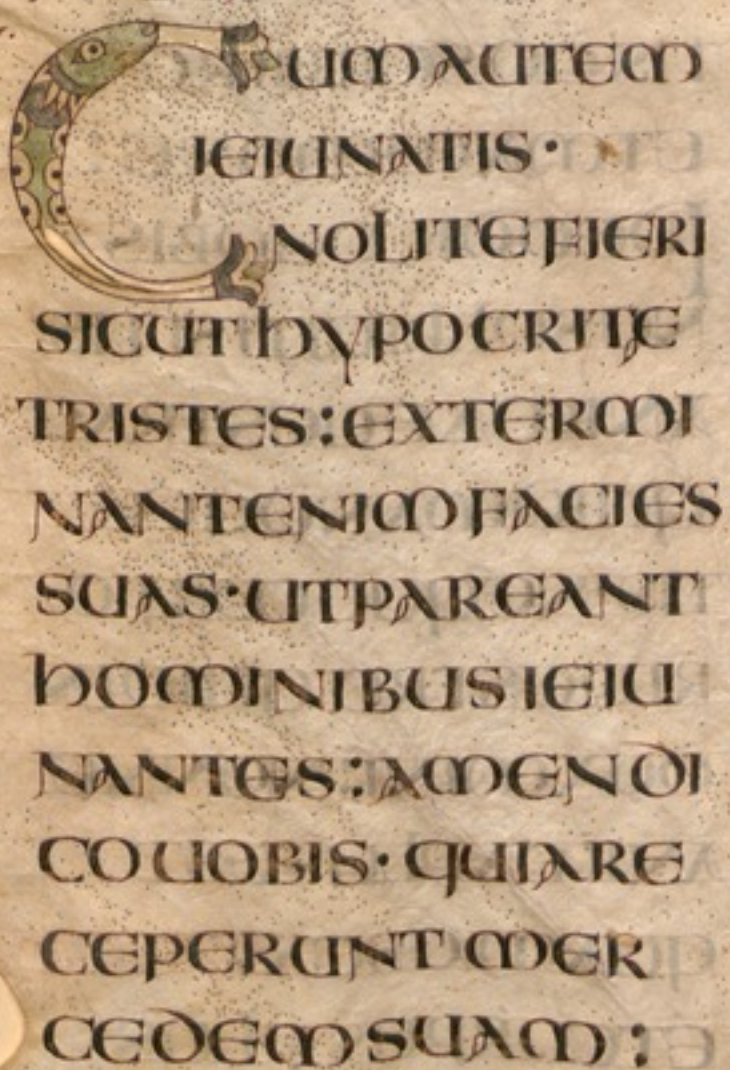 CUM AUTEM
IEIUNATIS·
NOLITE FIERI
SICUT hYPOCRITE
TRISTES: EXTERMI
NANT ENIM FACIES
SUAS· UT PAREANT
hOMINIBUS IEIU
NANTES: AMEN DI
CO UOBIS· QUIA RE
CEPERUNT MER
CEDEM SUAM: